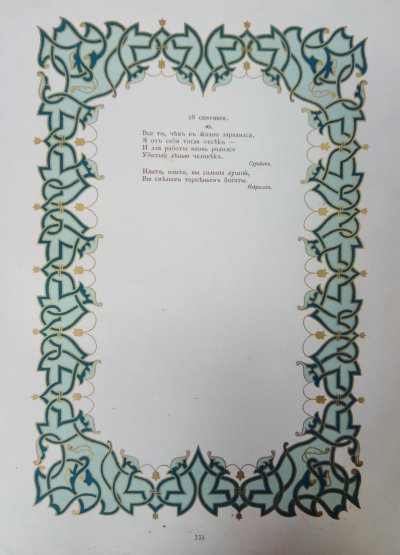 28 сентября.
Все то, чѣмъ въ жизни заразился,
Я отъ себя тогда отсѣкъ —
И для работы вновь родился
Убитый лѣнью человѣкъ.
Суриковъ.
Никто, никто, вы сильны душой,
Вы смѣлымъ терпѣньемъ богаты.
Некрасовъ.
335